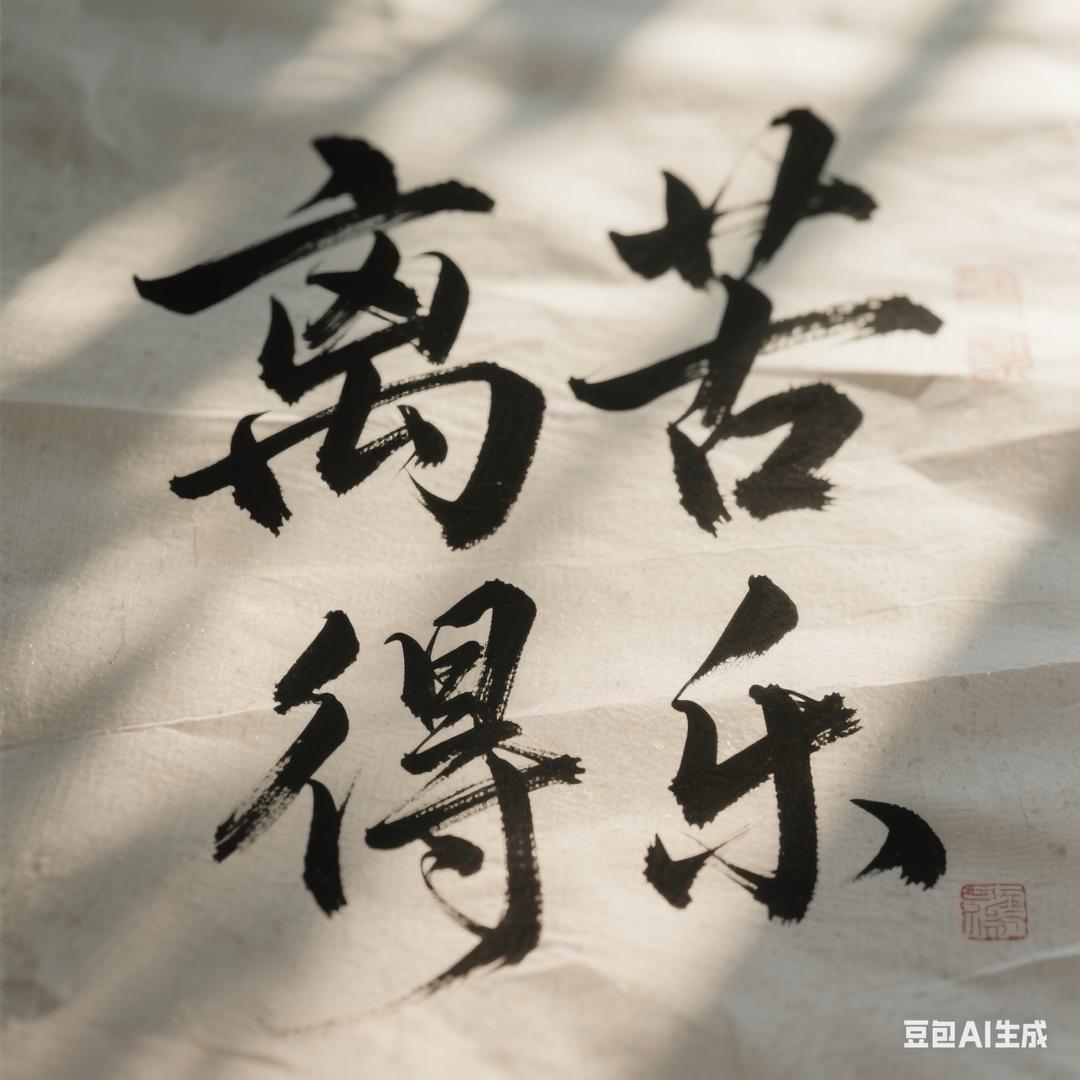 离苦
得乐
豆包AI生成